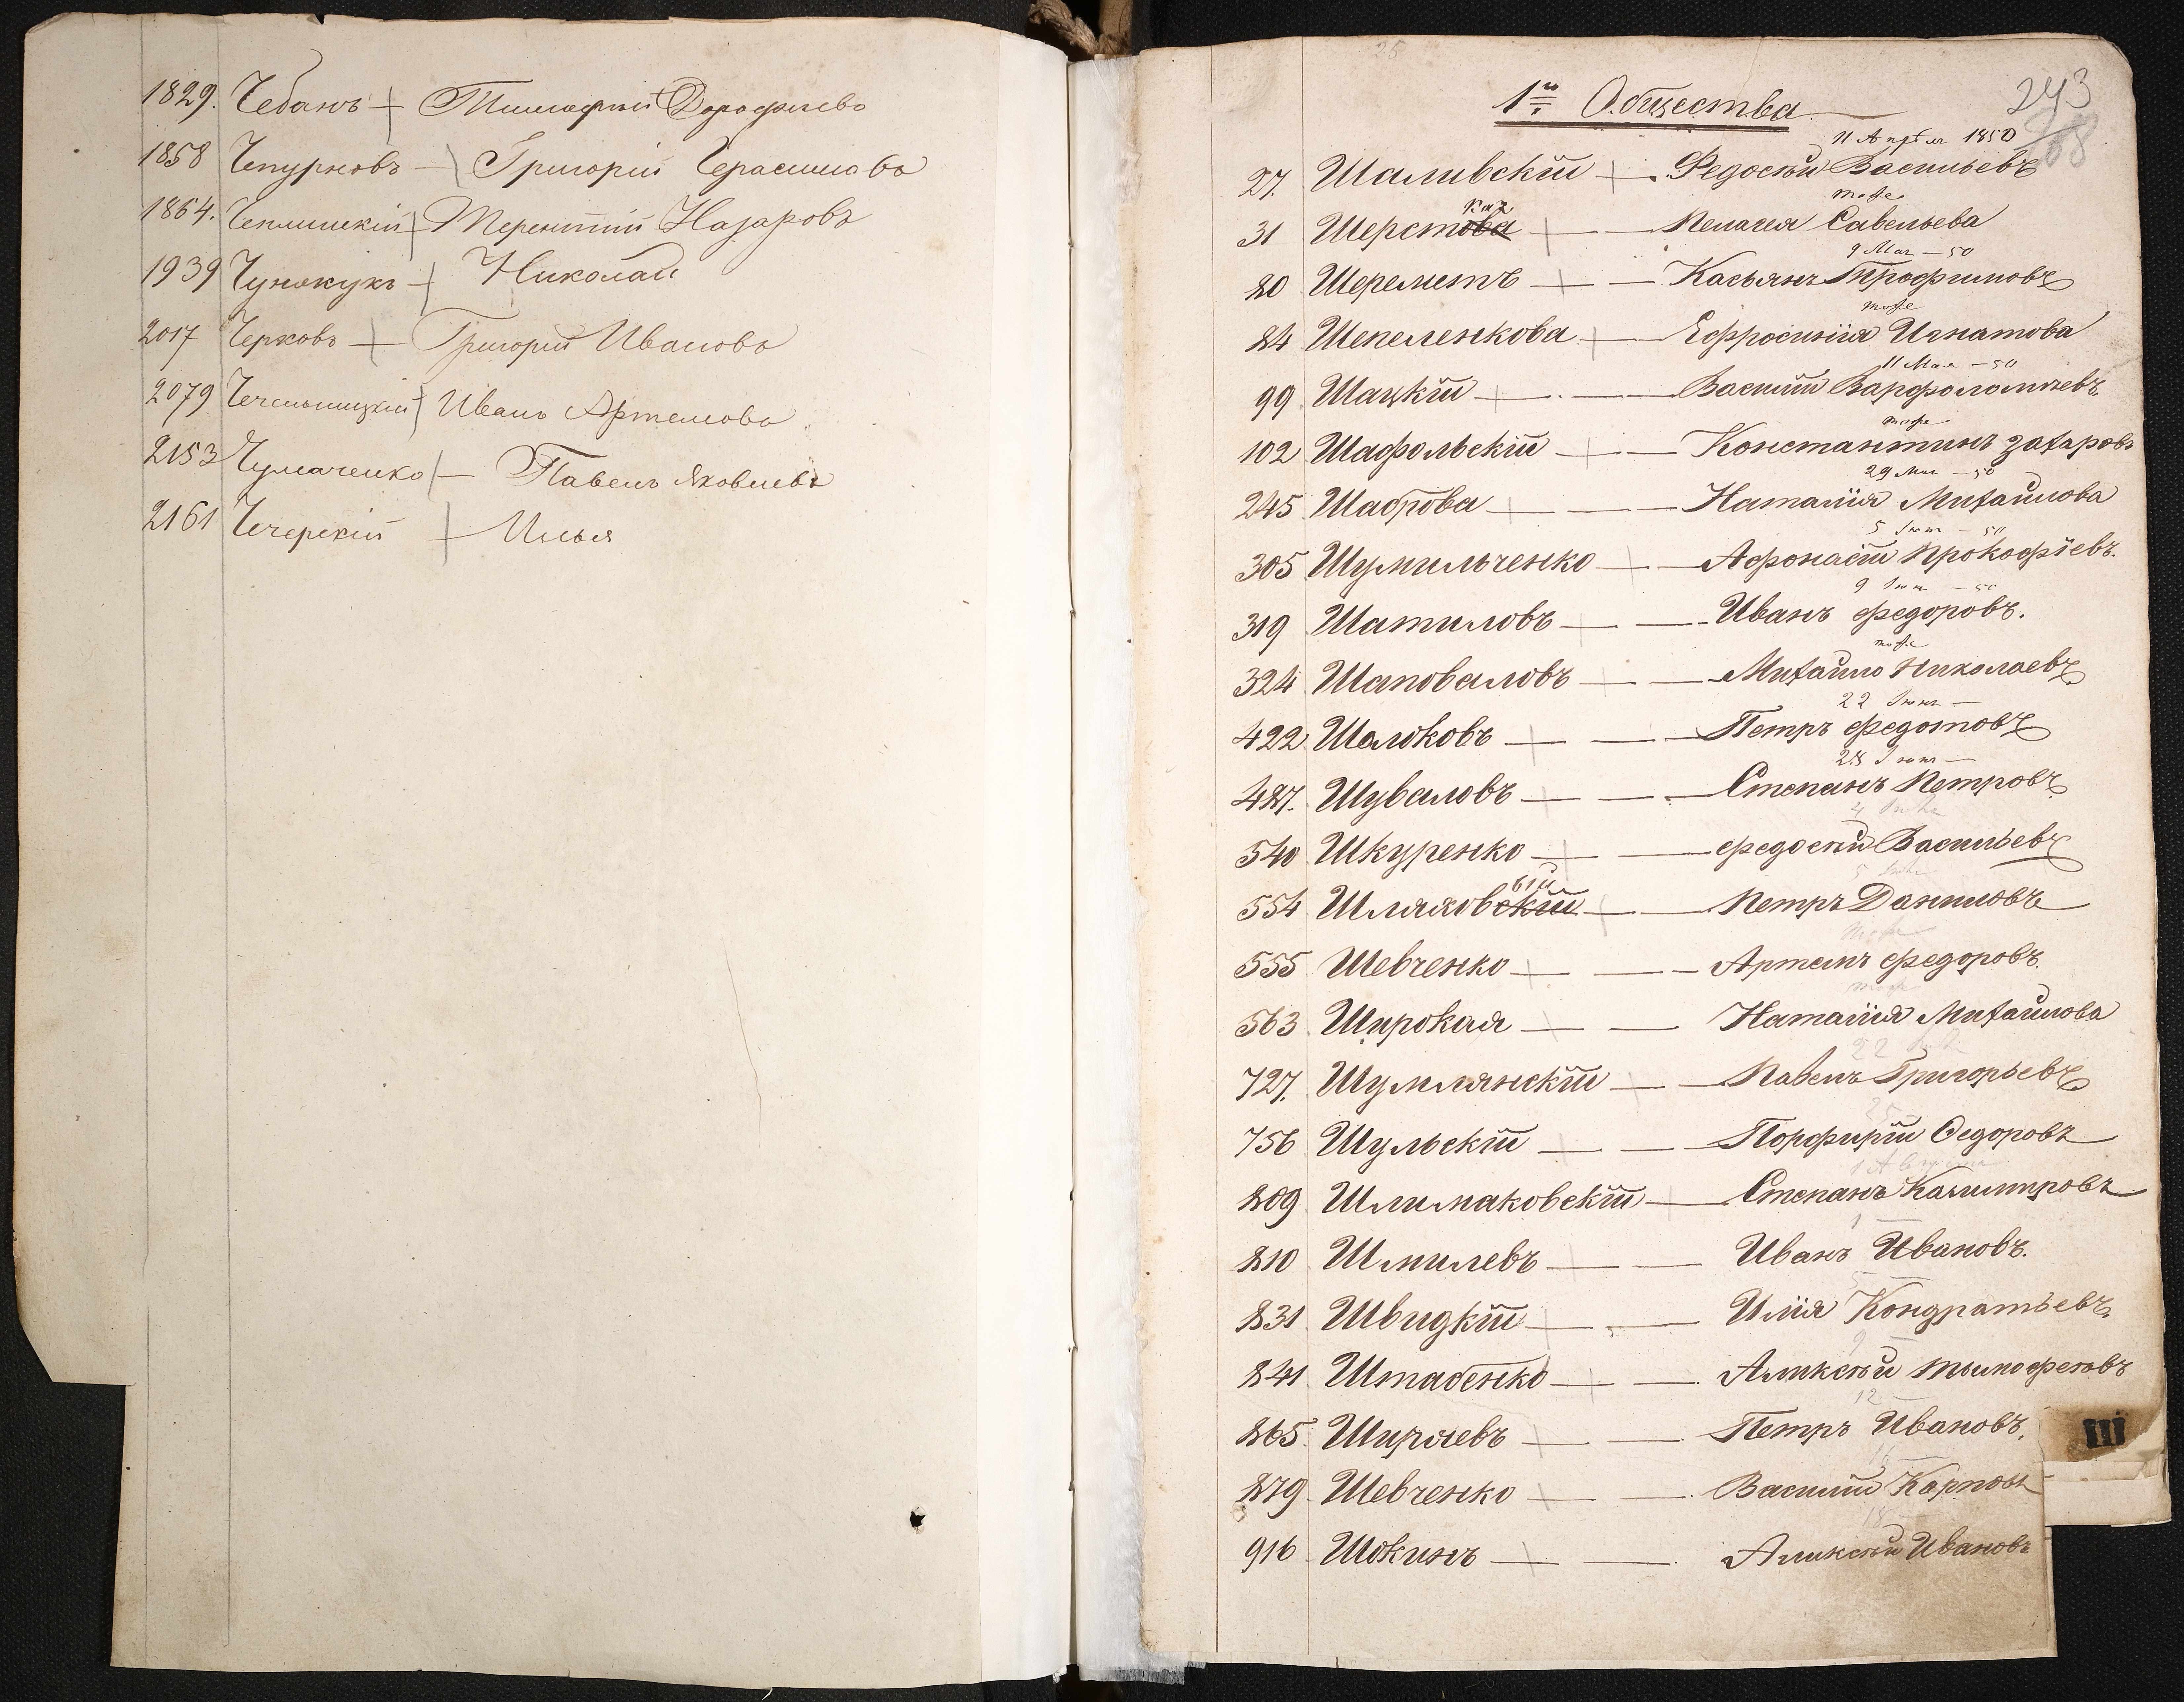 1829. Чебанъ — Тимофей Дорофеевъ
1858 Чепурновъ — Григорій Герасимовъ
1864. Чеплицкій Терентій Назаровъ
1939 Чунжукъ — Николай
2017 Черковъ — Григорій Ивановъ
2079 Чечельницкій Иванъ Артемовъ
2153 Чумаченко — Павелъ Яковлевъ
2161 Чечерскій Илья
25
243
68
1го Общества
11 Апрѣля 1850
27. Шаливскій — Федосѣй Васильевъ
тоже
31 Шерстова кая — Пелагея Савельева
9 Мая — 50
80 Шереметъ — Касьянъ Трофимовъ
тоже
84 Шепеленкова — Ефросинія Игнатова
11 Мая — 50
99 Шацкій — Василій Варфоломѣевъ
тоже
102 Шафольскій — Константинъ Захаровъ
29 Мая — 50
245 Шаброва — Наталія Михайлова
5 Іюня — 50
305 Шумильченко — Афонасій Прокофіевъ.
9 Іюня — 50
319 Шатиловъ — Иванъ Федоровъ.
тоже
324 Шаповаловъ — Михайло Николаевъ
22 Іюня —
422 Шалоковъ — Петръ Федотовъ
28 Іюня —
487. Шуваловъ — Степанъ Петровъ
540 Шкуренко — Федосѣй Васильевъ
554 Шляховскій ый — Петръ Даниловъ
тоже
555 Шевченко — Артемъ Федоровъ.
тоже
563 Широкая — Наталія Михайлова
22
727. Шумлянскій — Павелъ Григорьевъ
25
756 Шульскій — Порфирій Ѳедоровъ
1 Августа
809 Шлимаковскій — Степанъ Казимировъ
1 —
810 Шмилевъ — Иванъ Ивановъ.
5 —
831 Швидкій — Илія Кондратьевъ
9 —
841 Штабенко — Аликсѣй Тимофеевъ
12 —
865 Ширяевъ — Петръ Ивановъ.
879. Шевченко — Василій Карповъ
18
916 Шокинъ — Аликсѣй Ивановъ
Ш